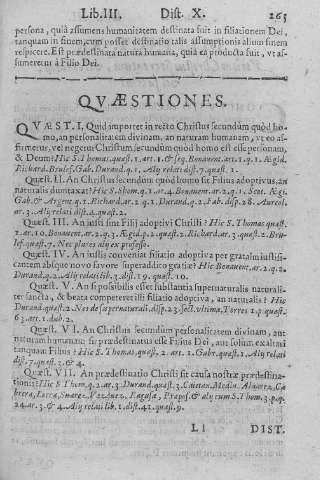 Lib. III. Dist. X. 265
persona, quià assumens humanitatem destinata fuit in filiationem Dei,
tanquam in finem, cum posset destinatio talis assumptionis alium finem
respicere. Est prædestinata natura humana, quià ea producta fuit, vt as-
sumeretur à Filio Dei.
QVÆSTIONES.
QVÆST. I. Quid importet in recto Christus secundum quòd ho-
mo, an personalitatem diuinam, an naturam humanam, vt eo af-
firmetur, vel negetur Christum, secundum quòd homo est esse personam,
& Deum? Hic S. Thomas, quæst. 1. art. 1. & seq. Bonauent. art. 1. q. 1. Ægid.
Richard. Brulef. Gab. Durand. q. 1. Alij relati dist. 7. quæst. 1.
Quæst. II. An Christus secundum quòd homo sit Filius adoptiuus, an
naturalis dumtaxat? Hic S. Thom. q. 1. ar. 4. Bonauent. ar. 2. q. 1. Scot. Æg.
Gab. & Argent. q. 1. Richard. ar. 2. q. 1. Durand. q. 2. Fab. disp. 28. Aureol.
ar. 3. Alij relati dist. 4. quæst. 2.
Quæst. III. An iusti sint Filij adoptiui Christi? Hic S. Thomas quæst.
2. ar. 10. Bonauent. ar. 2. q. 3. Ægid. p. 2. quæst. 2. Richard. ar. 3. quæst. 2. Bru-
lef. quæst. 7. Nec plures alij ex professo.
Quæst. IV. An iustis conueniat filiatio adoptiua per gratiam iustifi-
cantem absque nouo fauore superaddito gratiæ? Hic Bonauent. ar. 2. q. 2.
Durand. q. 2. Alij relati lib. 3. dist. 19. quæst. 10.
Quæst. V. An si possibilis esset substantia supernaturalis naturali-
ter sancta, & beata competeret illi filiatio adoptiua, an naturalis? Hic
Durand. quæst. 2. Nos de supernaturali. disp. 23. sect. vltima, Torres 1. p. quæst.
63. art. 1. dub. 2.
Quæst. VI. An Christus secundum personalitatem diuinam, aut
naturam humanam sit prædestinatus esse Filius Dei, aut solum exaltari
tanquam Filius? Hic S. Thomas, quæst. 2. art. 1. Gabr. quæst. 1. Alij relati
dist. 7. quæst. 3. & 4.
Quæst. VII. An prædestinatio Christi sit causa nostræ prædestina-
tionis? Hic S. Thom. q. 2. ar. 3. Durand. quæst. 3. Caietan. Medin. Aluarez, Ca-
brera, Lorca, Suarez, Vazquez, Ragusa, Prapos. & alij cum S. Thom. 3. p. q.
24. ar. 3. & 4. Alij relati lib. 1. dist. 41. quæst. 9.
Ll DIST.